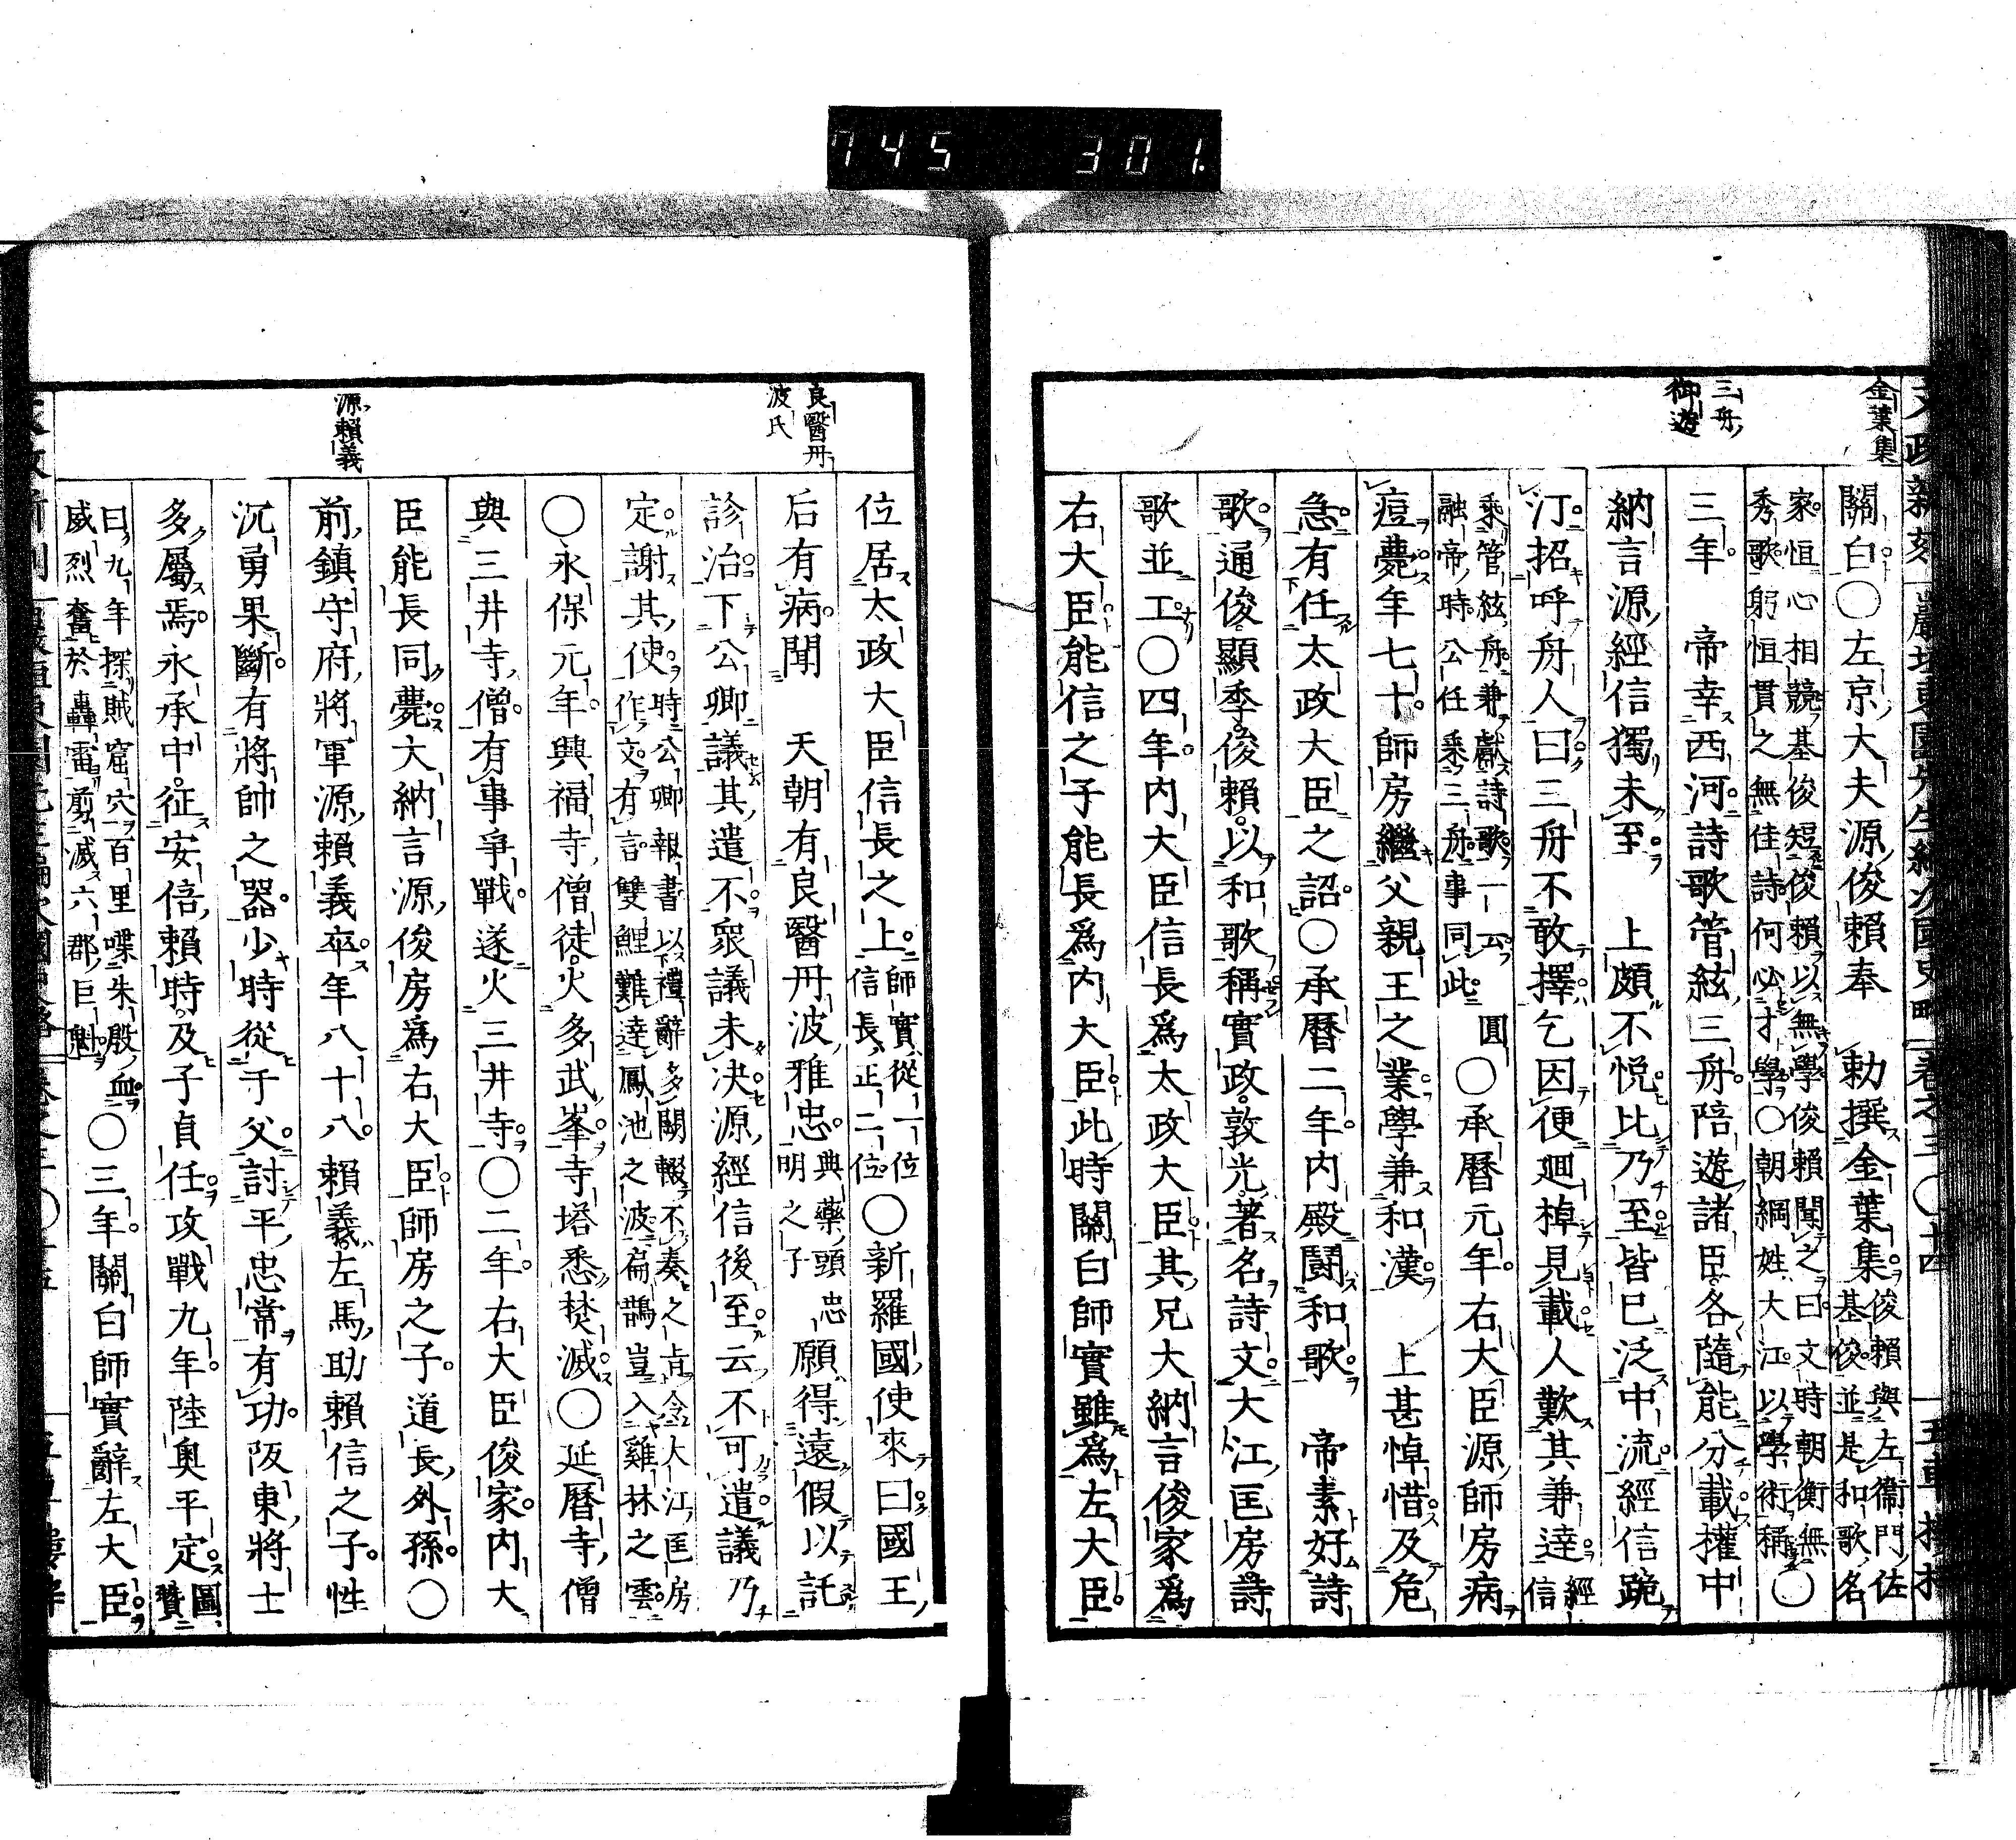 745 301.
金葉集
三舟
御遊
關白〇左京大夫源俊賴奉　勅撰金葉集俊賴與左衞門佐基俊並是和歌名
家恒心相競基俊短俊賴以無學俊賴聞之曰文時朝衡無秀歌躬恒貫之無佳詩何必才學〇朝綱姓大江以學術稱〇
三年　帝幸西河詩歌管絃三舟陪遊諸臣各隨能分載權中
納言源經信獨未至　上頗不悦比乃至皆已泛中流經信跪
汀招呼舟人曰三舟不敢擇乞因便廻棹見載人歎其兼達經信
乘管絃舟兼獻詩歌一云圓融帝時公任乘三舟事同此〇承曆元年右大臣源師房病
痘薨年七十師房繼父親王之業學兼和漢　上甚悼惜及危
急有任太政大臣之詔〇承曆二年内殿鬪和歌　帝素好詩
歌通俊顯季俊賴以和歌稱實政敦光著名詩文大江匡房詩
歌並工〇四年内大臣信長爲太政大臣其兄大納言俊家爲
右大臣能信之子能長爲内大臣此時關白師實雖爲左大臣
良醫丹
波氏
源賴義
位居太政大臣信長之上師實從一位信長正二位〇新羅國使來曰國王
后有病聞　天朝有良醫丹波雅忠典藥頭忠明之子願得遠假以託
診治下公卿議其遣不衆議未决源經信後至云不可遣議乃
定謝其使時公卿報書以下禮辭多闕輟不奏之旨令大江匡房作文有言雙鯉難達鳳池之波扁鵲豈入雞林之雲
〇永保元年興福寺僧徒火多武峯寺塔悉焚滅〇延曆寺僧
與三井寺僧有事爭戰遂火三井寺〇二年右大臣俊家内大
臣能長同薨大納言源俊房爲右大臣師房之子道長外孫〇
前鎮守府將軍源賴義卒年八十八賴義左馬助賴信之子性
沉勇果斷有將帥之器少時從于父討平忠常有功阪東將士
多屬焉永承中征安倍賴時及子貞任攻戰九年陸奥平定圖贊
曰九年探賊窟穴百里喋朱殷血威烈奮於轟雷剪滅六郡巨魁〇三年關白師實辭左大臣